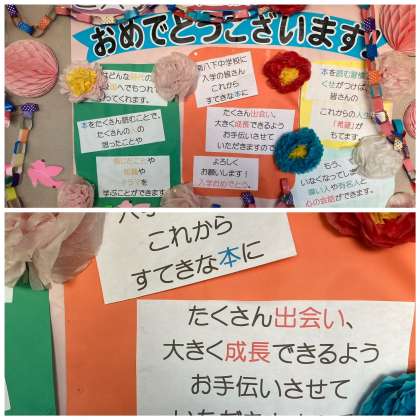 おめでとうございます
南八下中学校に
入学の皆さん
これから
すてきな本に
たくさん出会い、
大きく成長できるよう
お手伝いさせて
いただきますので
よろしく
お願いします!
入学おめでとう。
本をたくさん読むことで、
たくさんの人の
思ったことや
ことや
知識や
を
学ぶことができます
本を読む習慣
くせがつけば、
皆さんの
これからの人生
「希望」が
もてます。
もう、
いなくなってしま
願い人や有名人と
心の会話ができます。
これから
すてきな本に
たくさん出会い、
大きく成長できるよう
お手伝いさせて